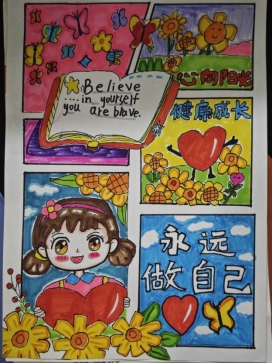 Believe
.... in yourself
you are brave.
心向阳光
健康成长
永远
做自己